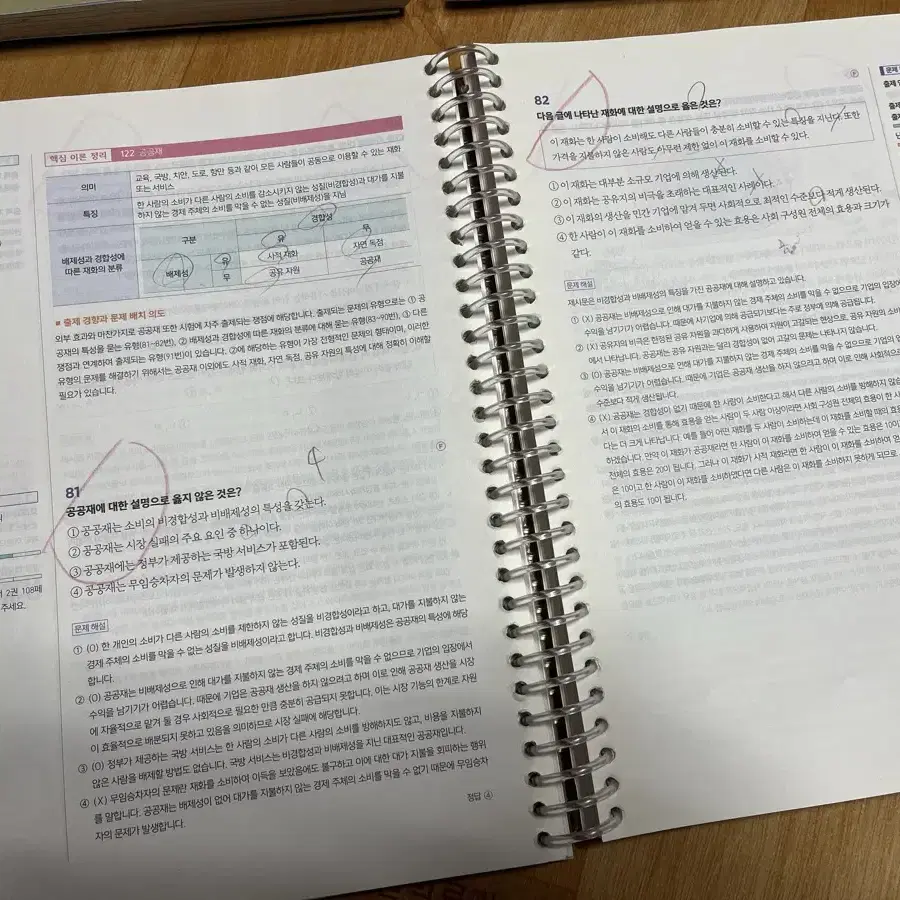 핵심 이론 정리 122 공공재
의미
교육, 국방, 치안, 도로, 항만 등과 같이 모든 사람들이 공동으로 이용할 수 있는 재화
또는 서비스
특징
한 사람의 소비가 다른 사람의 소비를 감소시키지 않는 성질(비경합성)과 대가를 지불
하지 않는 경제 주체의 소비를 막을 수 없는 성질(비배제성)을 지님
배제성과 경합성에
따른 재화의 분류
구분
경합성
유
무
배제성
유
사적 재화
자연 독점
무
공유 자원
공공재
■ 출제 경향과 문제 배치 의도
외부 효과와 마찬가지로 공공재 또한 시험에 자주 출제되는 쟁점에 해당합니다. 출제되는 문제의 유형으로는 ① 공
공재의 특성을 묻는 유형(81~82번), ② 배제성과 경합성에 따른 재화의 분류에 대해 묻는 유형(83~90번), ③ 다른
쟁점과 연계하여 출제되는 유형(91번)이 있습니다. ②에 해당하는 유형이 가장 전형적인 문제의 형태이며, 이러한
유형의 문제를 해결하기 위해서는 공공재 이외에도 사적 재화, 자연 독점, 공유 자원의 특성에 대해 정확히 이해할
필요가 있습니다.
4
81
공공재에 대한 설명으로 옳지 않은 것은?
① 공공재는 소비의 비경합성과 비배제성의 특성을 갖는다.
② 공공재는 시장 실패의 주요 요인 중 하나이다.
③ 공공재에는 정부가 제공하는 국방 서비스가 포함된다.
④ 공공재는 무임승차자의 문제가 발생하지 않는다.
문제 해설
① (O) 한 개인의 소비가 다른 사람의 소비를 제한하지 않는 성질을 비경합성이라고 하고, 대가를 지불하지 않는
경제 주체의 소비를 막을 수 없는 성질을 비배제성이라고 합니다. 비경합성과 비배제성은 공공재의 특성에 해당
합니다.
② (O) 공공재는 비배제성으로 인해 대가를 지불하지 않는 경제 주체의 소비를 막을 수 없으므로 기업의 입장에서
수익을 남기기가 어렵습니다. 때문에 기업은 공공재 생산을 하지 않으려고 하며 이로 인해 공공재 생산을 시장
에 자율적으로 맡겨 둘 경우 사회적으로 필요한 만큼 충분히 공급되지 못합니다. 이는 시장 기능의 한계로 자원
이 효율적으로 배분되지 못하고 있음을 의미하므로 시장 실패에 해당합니다.
③ (O) 정부가 제공하는 국방 서비스는 한 사람의 소비가 다른 사람의 소비를 방해하지도 않고, 비용을 지불하지
않은 사람을 배제할 방법도 없습니다. 국방 서비스는 비경합성과 비배제성을 지닌 대표적인 공공재입니다.
④ (X) 무임승차자의 문제란 재화를 소비하여 이득을 보았음에도 불구하고 이에 대한 대가 지불을 회피하는 행위
를 말합니다. 공공재는 배제성이 없어 대가를 지불하지 않는 경제 주체의 소비를 막을 수 없기 때문에 무임승차
자의 문제가 발생합니다.
정답 ④
2권 108페
주세요.
82
다음 글에 나타난 재화에 대한 설명으로 옳은 것은?
이 재화는 한 사람이 소비해도 다른 사람들이 충분히 소비할 수 있는 특징을 지닌다. 또한
가격을 지불하지 않은 사람도 아무런 제한 없이 이 재화를 소비할 수 있다.
① 이 재화는 대부분 소규모 기업에 의해 생산된다.
② 이 재화는 공유지의 비극을 초래하는 대표적인 사례이다.
③ 이 재화의 생산을 민간 기업에 맡겨 두면 사회적으로 최적인 수준보다 적게 생산된다.
④ 한 사람이 이 재화를 소비하여 얻을 수 있는 효용은 사회 구성원 전체의 효용과 크기가
같다.
문제 해설
제시문은 비경합성과 비배제성의 특징을 가진 공공재에 대해 설명하고 있습니다.
① (X) 공공재는 비배제성으로 인해 대가를 지불하지 않는 경제 주체의 소비를 막을 수 없으므로 기업의 입장에
수익을 남기기가 어렵습니다. 때문에 사기업에 의해 공급되기보다는 주로 정부에 의해 공급됩니다.
② (X) 공유지의 비극은 한정된 공유 자원을 과다하게 사용하여 자원이 고갈되는 현상으로, 공유 자원의 소비
에서 나타납니다. 공공재는 공유 자원과는 달리 경합성이 없어 고갈의 문제는 나타나지 않습니다.
③ (O) 공공재는 비배제성으로 인해 대가를 지불하지 않는 경제 주체의 소비를 막을 수 없으므로 기업의
수익을 남기기가 어렵습니다. 때문에 기업은 공공재 생산을 하지 않으려고 하며 이로 인해 사회적으로
수준보다 적게 생산됩니다.
④ (X) 공공재는 경합성이 없기 때문에 한 사람이 소비한다고 해서 다른 사람의 소비를 방해하지 않습
서 이 재화의 소비를 통해 효용을 얻는 사람이 두 사람 이상이라면 사회 구성원 전체의 효용이 한 사
다는 더 크게 나타납니다. 예를 들어 어떤 재화를 두 사람이 소비하는데 이 재화를 소비할 때의 효용
하겠습니다. 만약 이 재화가 공공재라면 한 사람이 이 재화를 소비하여 얻을 수 있는 효용은 10이
전체의 효용은 20이 됩니다. 그러나 이 재화가 사적 재화라면 한 사람이 이 재화를 소비하여 얻
은 10이고 한 사람이 이 재화를 소비하였다면 다른 사람은 이 재화를 소비하지 못하게 되므로
의 효용도 10이 됩니다.
문제
출제